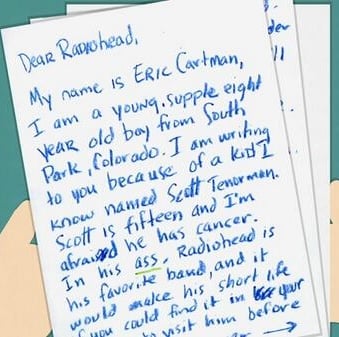 Dear Radiohead,
My name is Eric Cartman,
I am a young, supple eight
year old boy from South
Park, Colorado. I am writing
to you because of a kid I
know named Scott Tenorman.
Scott is fifteen and I'm
afraid he has cancer.
In his ass. Radiohead is
his favorite band, and it
would make his short life
if you could find it in your
to visit him before